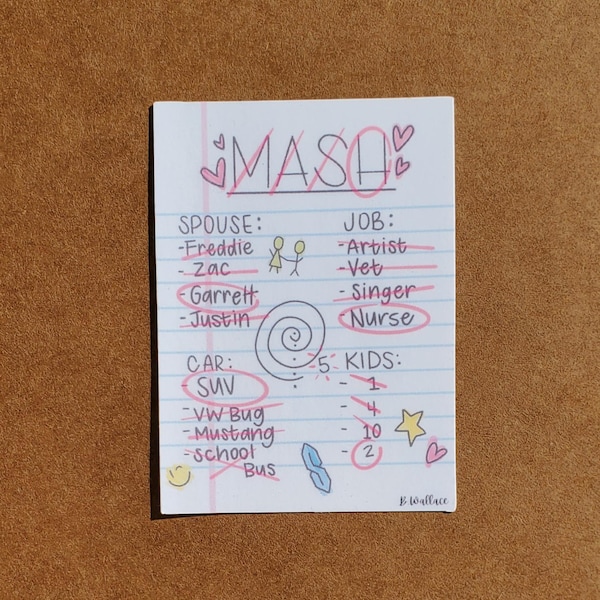 MASH
SPOUSE:
- Freddie
- Zac
- Garrett
- Justin
JOB:
- Artist
- Vet
- Singer
- Nurse
CAR:
- SUV
- VW Bug
- Mustang
- School
Bus
5
KIDS:
- 1
- 4
- 10
- 2
B Wallace